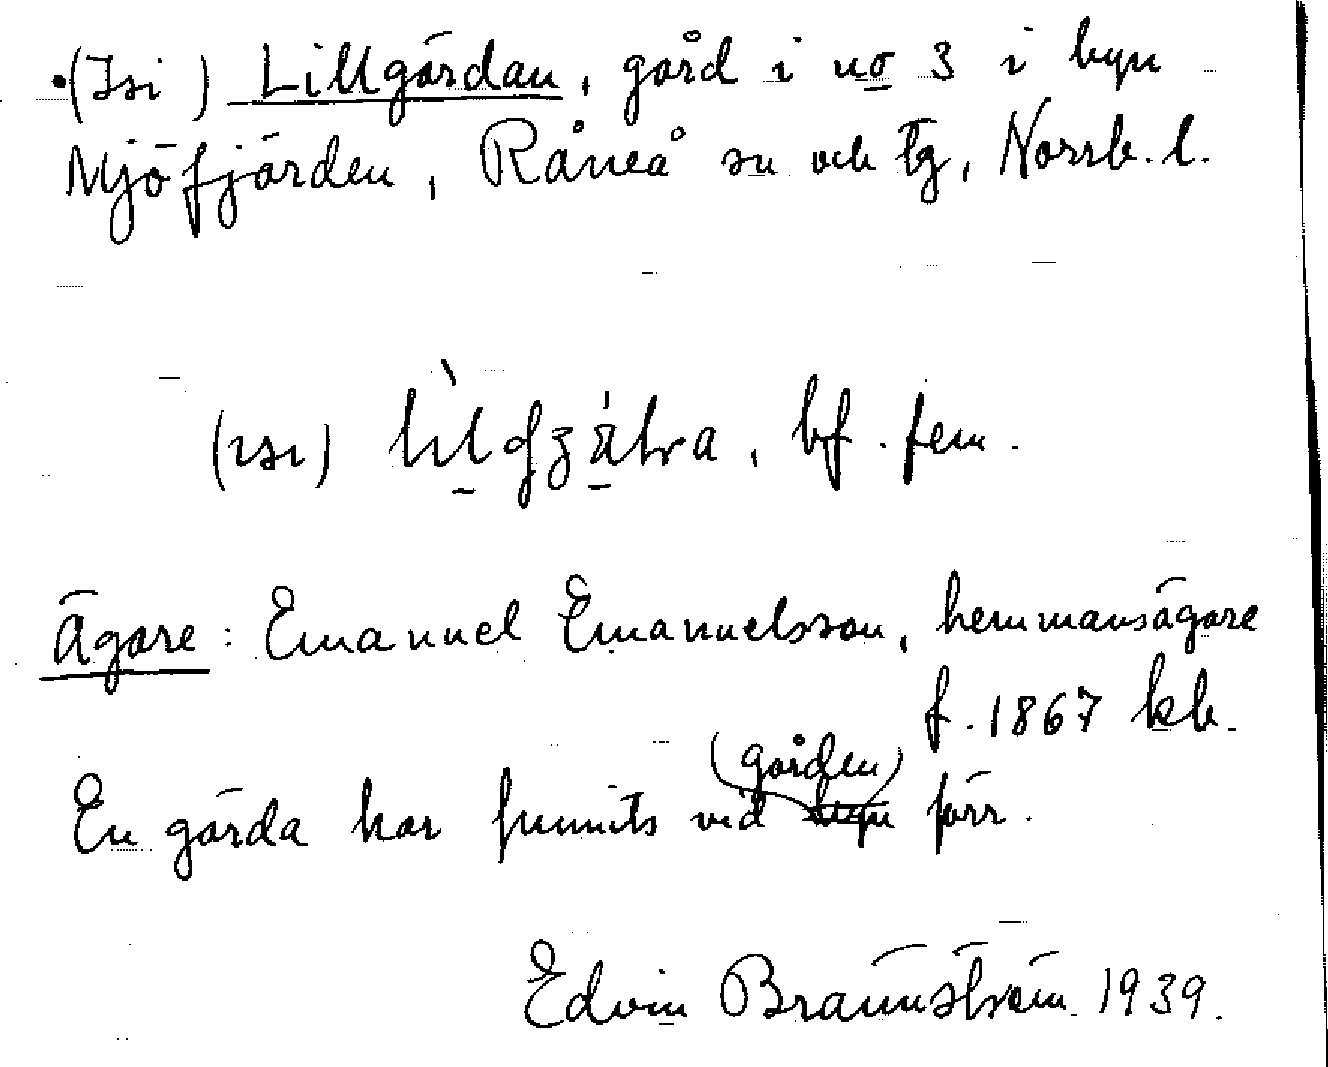 (Isi) Lillgärdan, gård i no 3 i byn
Mjöfjärden, Råneå sn och tg, Norrb. l.
(ɪsɪ) , bf. fem.
Ägare: Emanuel Emanuelsson, hemmansägare
f. 1867 kb.
(gården)
En gärda har funnits vid byn förr.
Edvin Brännström 1939.